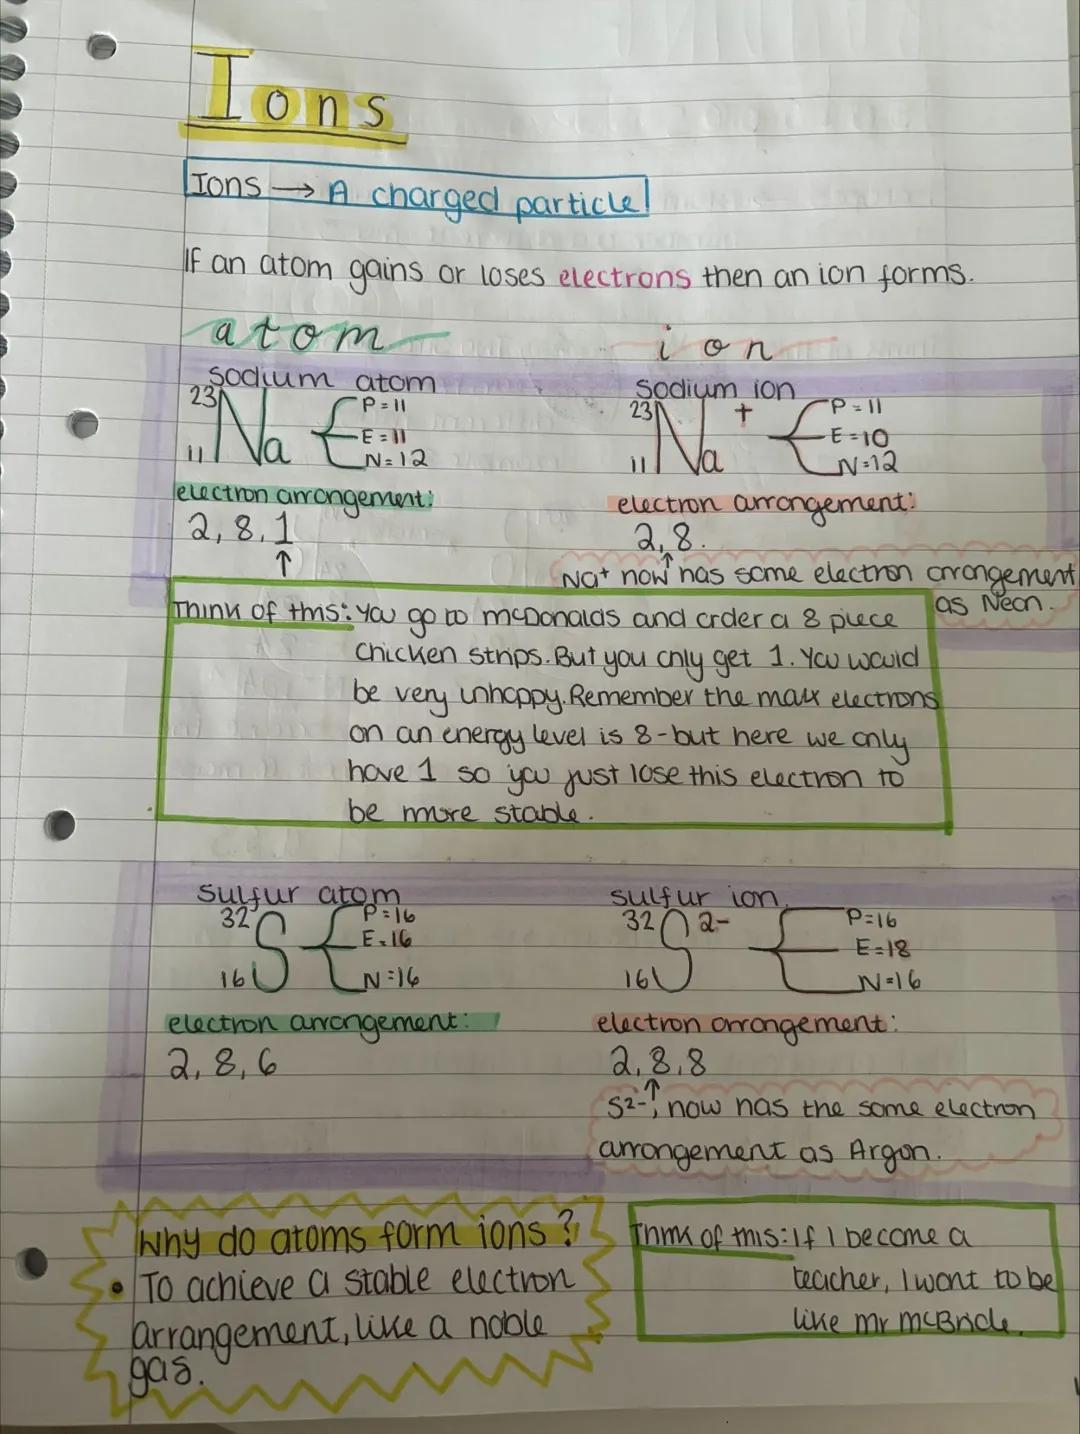 Ions
Ions → A charged particle
If an atom gains or loses electrons then an ion forms.
atom
ion
sodium atom
23
11 Na
P = 11
E = 11
N = 12
electron arrangement:
2, 8, 1
↑
sodium ion
23
11 Na +
P = 11
E = 10
N = 12
electron arrangement:
2, 8.
↑
Na+ now has same electron arrangement
as Neon.
Think of this: You go to mcDonalds and order a 8 piece
chicken strips. But you only get 1. You would
be very unhappy. Remember the max electrons
on an energy level is 8 - but here we only
have 1 so you just lose this electron to
be more stable.
sulfur atom
32
16 S
P = 16
E = 16
N = 16
electron arrangement:
2, 8, 6
sulfur ion
32
16 S 2-
P = 16
E = 18
N = 16
electron arrangement:
2, 8, 8
↑
S2-, now has the same electron
arrangement as Argon.
Why do atoms form ions?
• To achieve a stable electron
arrangement, like a noble
gas.
Think of this: If I become a
teacher, I want to be
like mr mcBride.